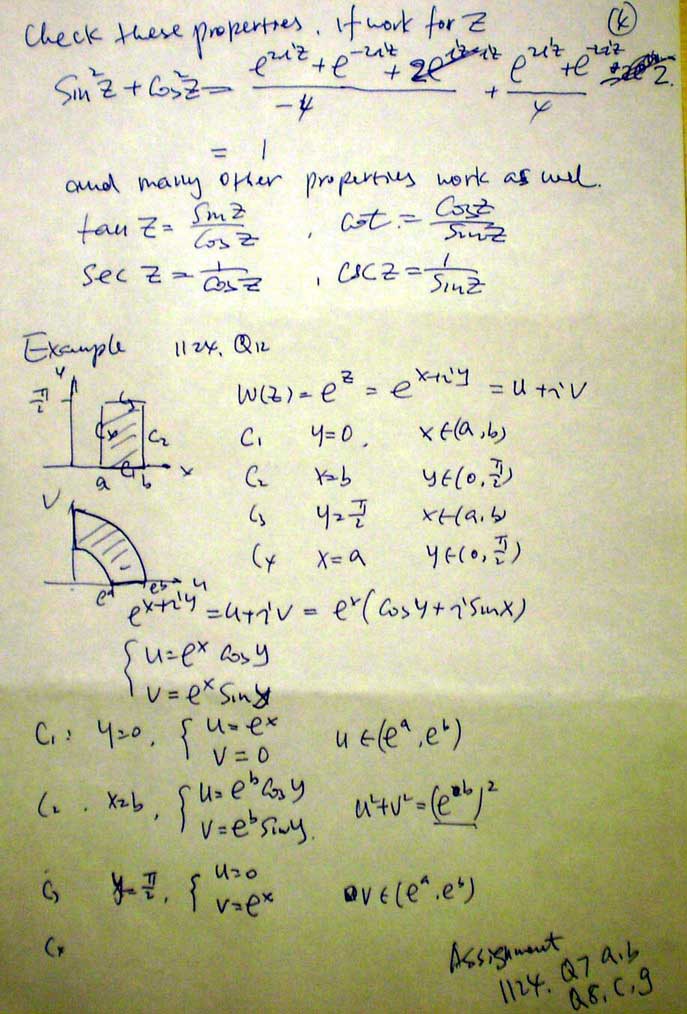 Check these properties, if work for Z (k)
Sin²z + Cos²z = (e^{2iz} + e^{-2iz} + 2)/(-4) + (e^{2iz} + e^{-2iz} + 2)/4
= 1
and many other properties work as well.
tan Z = Sin Z / Cos Z , cot. = Cos Z / Sin Z
Sec Z = 1 / Cos Z , csc Z = 1 / Sin Z
Example 1124. Q12
y
π/2
C3
C4
C2
C1
a b x
W(Z) = e^z = e^{x+iy} = u + iv
C1 y=0, x∈(a,b)
C2 x=b y∈(0, π/2)
C3 y=π/2 x∈(a,b)
C4 x=a y∈(0, π/2)
V
e^a e^b u
e^{x+iy} = u+iv = e^x (Cos y + i Sin x)
{ u = e^x Cos y
v = e^x Sin y
C1: y=0, { u = e^x
v = 0 u∈(e^a, e^b)
C2. x=b, { u = e^b Cos y
v = e^b Sin y. u²+v² = (e^b)²
C3 y=π/2, { u=0
v=e^x v∈(e^a, e^b)
C4
Assignment
1124. Q7 a,b
Q8, C, g